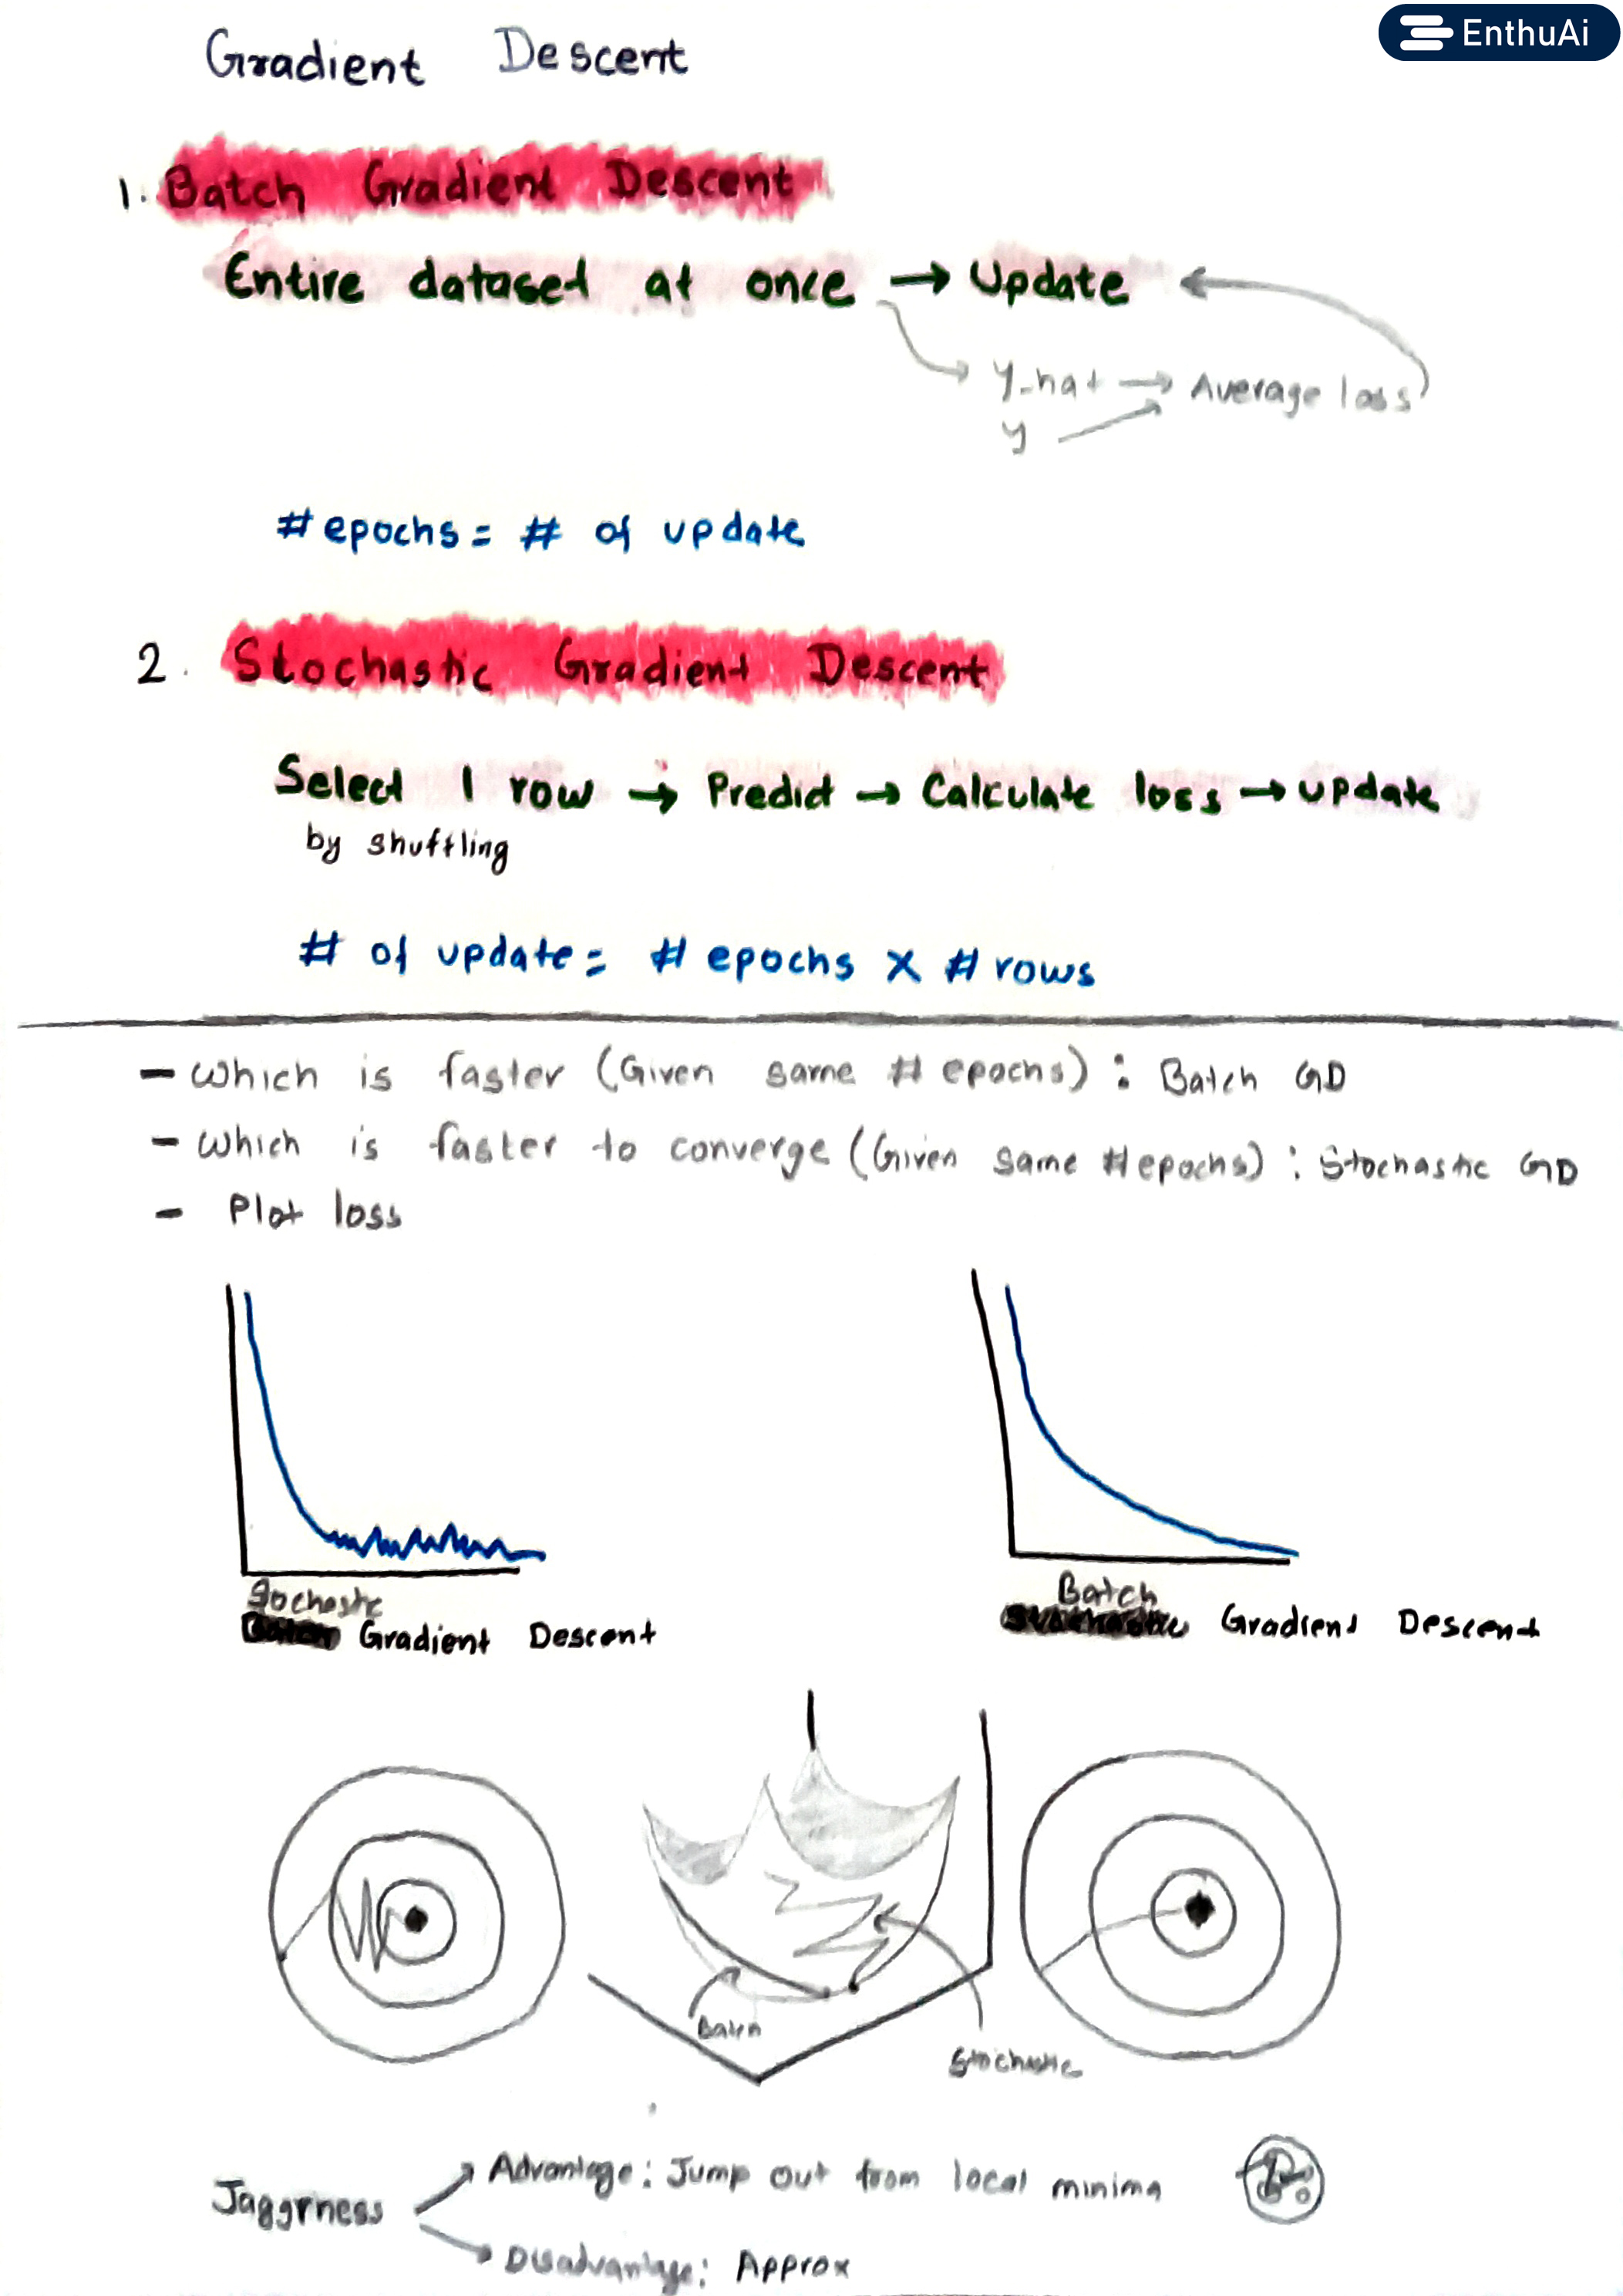 EnthuAi
Gradient Descent
1. Batch Gradient Descent
Entire dataset at once → Update
y_hat → Average loss
y
#epochs = # of update
2. Stochastic Gradient Descent
Select 1 row → Predict → Calculate loss → update
by shuffling
# of update = # epochs x # rows
- Which is faster (Given same # epochs) : Batch GD
- Which is faster to converge (Given same #epochs) : Stochastic GD
- Plot loss
Stochastic
Gradient Descent
Batch
Gradient Descent
Batch
Stochastic
Jaggrness
Advantage: Jump out from local minima
Disadvantage: Approx